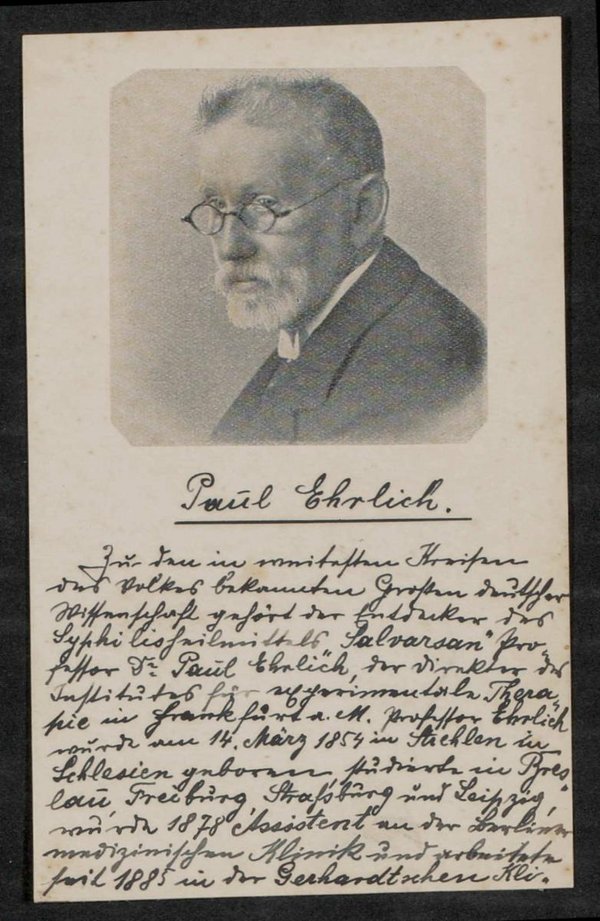 Paul Ehrlich.
Zu den in weitesten Kreisen
des Volkes bekannten Großen deutscher
Wissenschaft gehört der Entdecker des
Syphilisheilmittels „Salvarsan" Pro-
fessor Dr. Paul Ehrlich, der Direktor des
Institutes für experimentale Thera
pie in Frankfurt a. M. Professor Ehrlich
wurde am 14. März 1854 in Strehlen in
Schlesien geboren, studierte in Bres-
lau, Freiburg, Straßburg und Leipzig,
wurde 1878 Assistent an der Berliner
medizinischen Klinik und arbeitete
seit 1885 in der Gerhardtschen Kli-